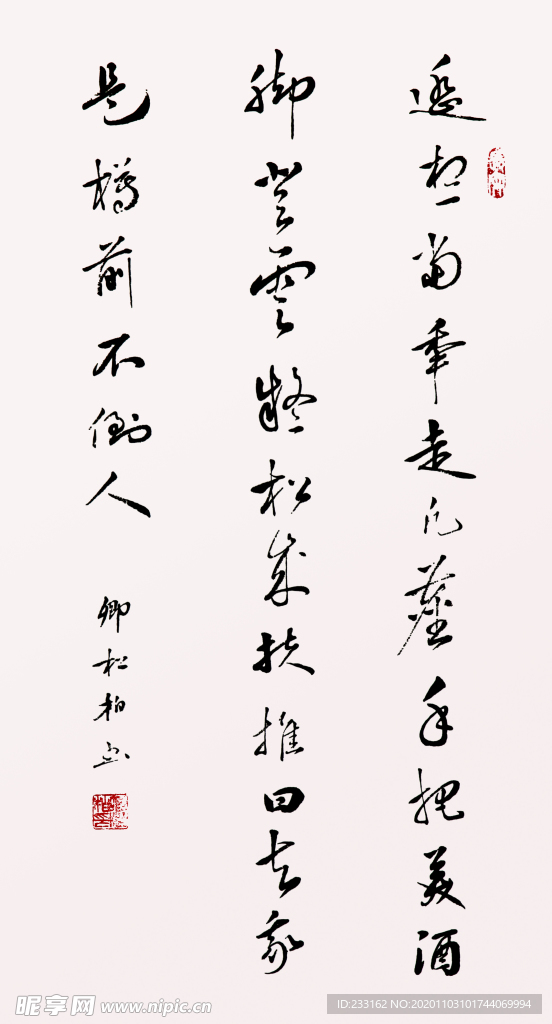 遥想當年走凡塵手把美酒
脚登雲疑松来扶推曰去我
是樽前不倒人
卿松柏書
昵享网 www.nipic.cn
ID:233162 NO:20201103101744069994